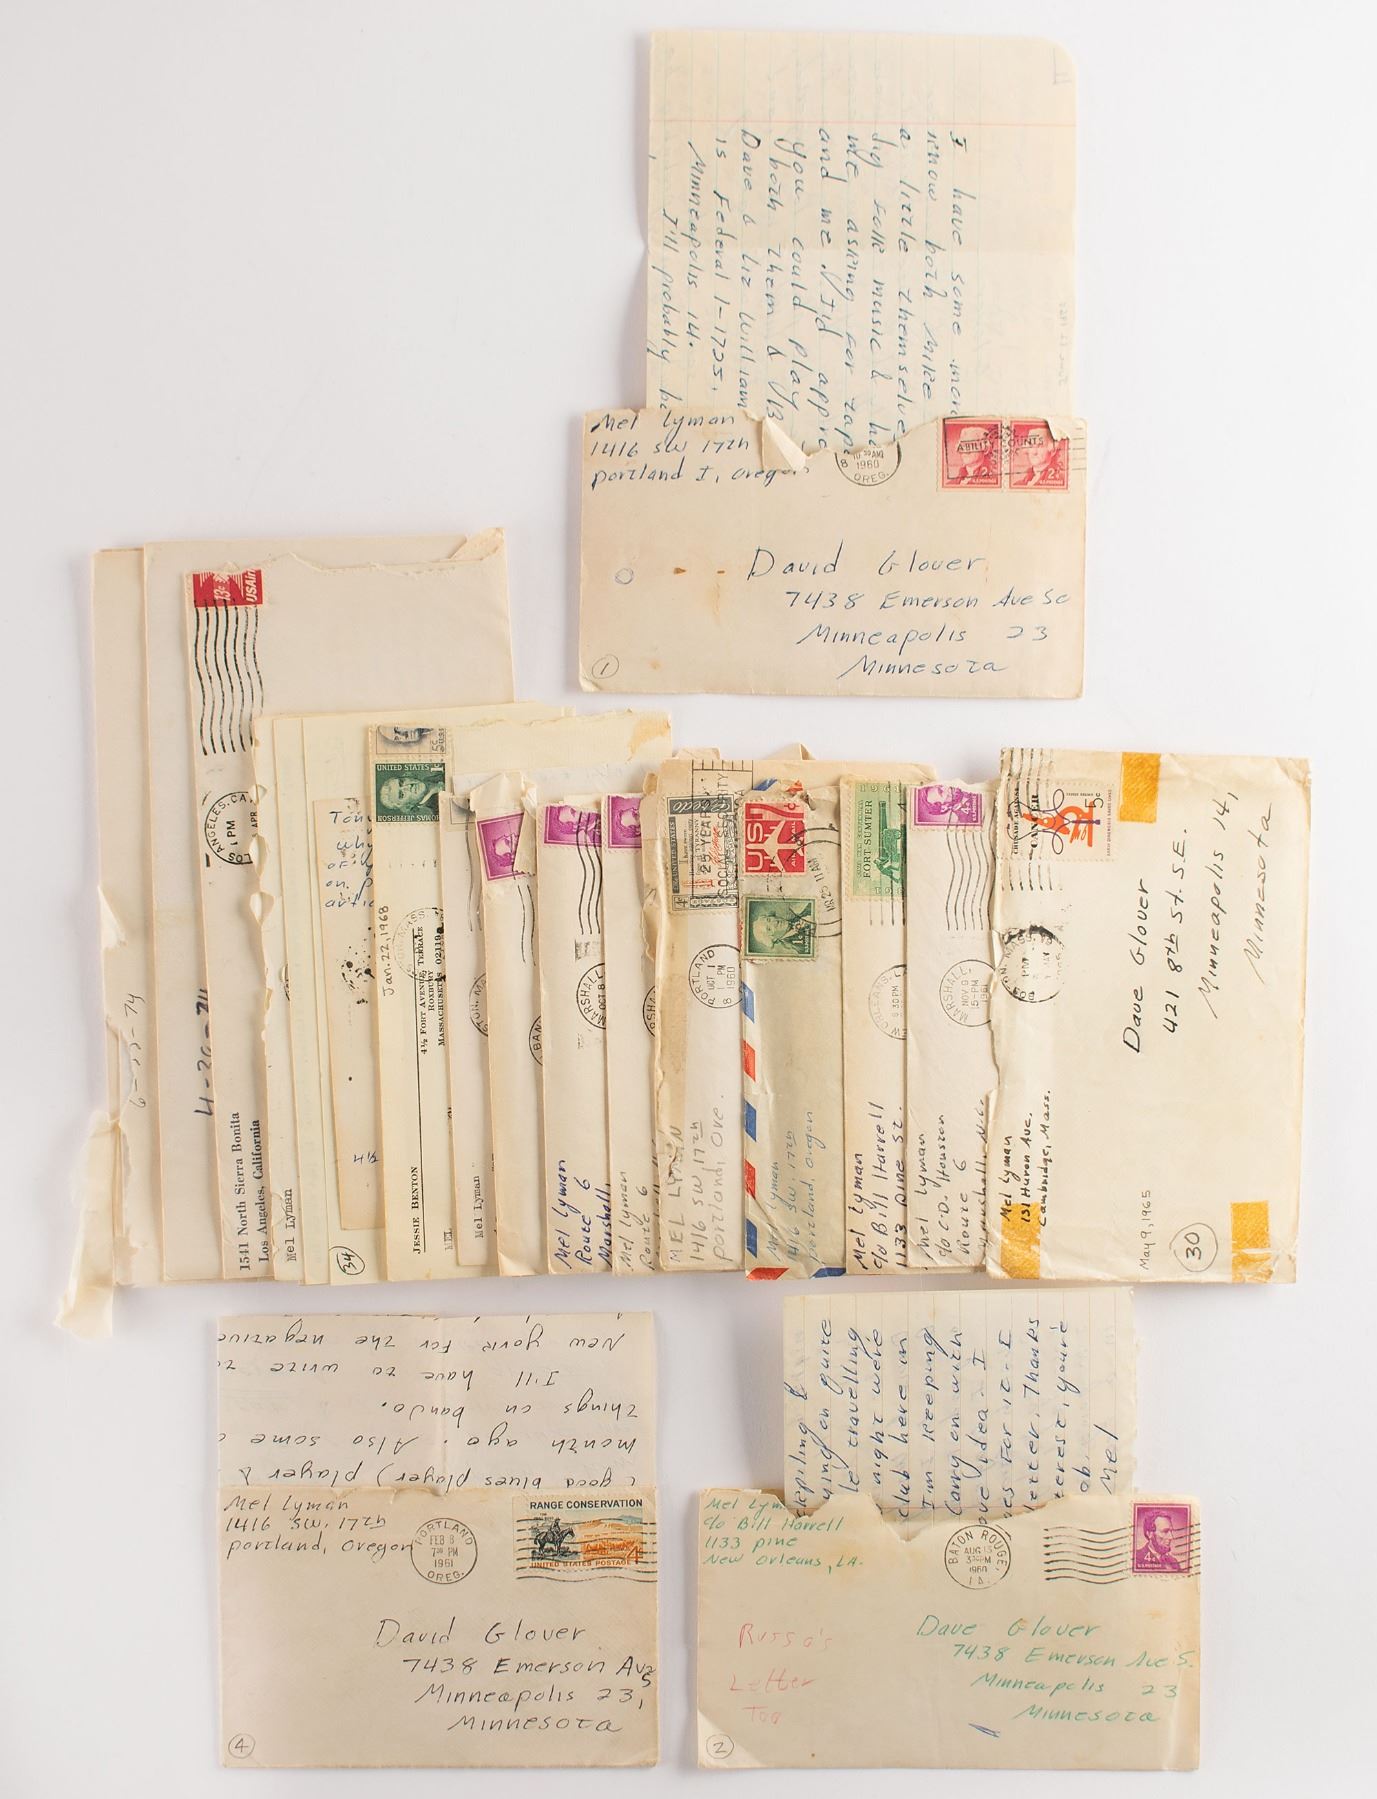 I have some more
know both Mike
a little themselve
dig folk music & he
me asking for tape
and me. I'd appre
you could play
both them &
Dave & Liz William
is Federal 1-1725,
Minneapolis 14.
I'll probably be
Mel Lyman
1416 SW 17th
Portland 1, Oregon
1960
OREG.
ABILITY COUNTS
2¢
2¢
David Glover
7438 Emerson Ave So
Minneapolis 23
Minnesota
1
13c
USAir
LOS ANGELES, CA.
1 PM
APR
6-25-74
4-26-74
1541 North Sierra Bonita
Los Angeles, California
Mel Lyman
34
UNITED STATES
THOMAS JEFFERSON
Jan. 22, 1968
4½ FORT AVENUE TERRACE
ROXBURY
MASSACHUSETTS 02119
JESSIE BENTON
MEL
Mel Lyman
MARSHALL
OCT 8
Mel Lyman
Route 6
Marshall,
Mel Lyman
Route 6
25 YEARS
SOCIAL SECURITY
PORTLAND
OCT 1
PM
1960
MEL LYMAN
1416 SW 17th
Portland, Ore.
US
11 AM
Mel Lyman
1416 S.W. 17th
Portland, Oregon
FORT SUMTER
NEW ORLEANS
8 30 PM
Mel Lyman
c/o Bill Harrell
1133 Pine St.
4¢
MARSHALL
NOV 8
5-PM
1961
Mel Lyman
c/o C.D. Houston
Route 6
Marshall, N.C.
CRUSADE AGAINST
CANCER
5c
Mel Lyman
131 Huron Ave.
Cambridge, Mass.
Dave Glover
421 8th St. S.E.
Minneapolis 14,
Minnesota
May 9, 1965
30
New York for the negative
I'll have to write to
things on banjo.
month ago. Also some
good blues player) player &
Mel Lyman
1416 S.W. 17th
Portland, Oregon
PORTLAND
FEB 8
7 30 PM
1961
OREG.
RANGE CONSERVATION
4¢
UNITED STATES POSTAGE
David Glover
7438 Emerson Ave S
Minneapolis 23,
Minnesota
4
&
ying on quite
le travelling
night we're
club here in
I'm keeping
Carry on with
ove idea I
nes for it - I
letter. Thanks
terest, you're
ob,
Mel
Mel Lym
c/o Bill Harrell
1133 Pine
New Orleans, LA.
BATON ROUGE,
AUG 15
3 30 PM
1960
LA.
4¢
U.S. POSTAGE
Russo's
Letter
Too
Dave Glover
7438 Emerson Ave S.
Minneapolis 23
Minnesota
2